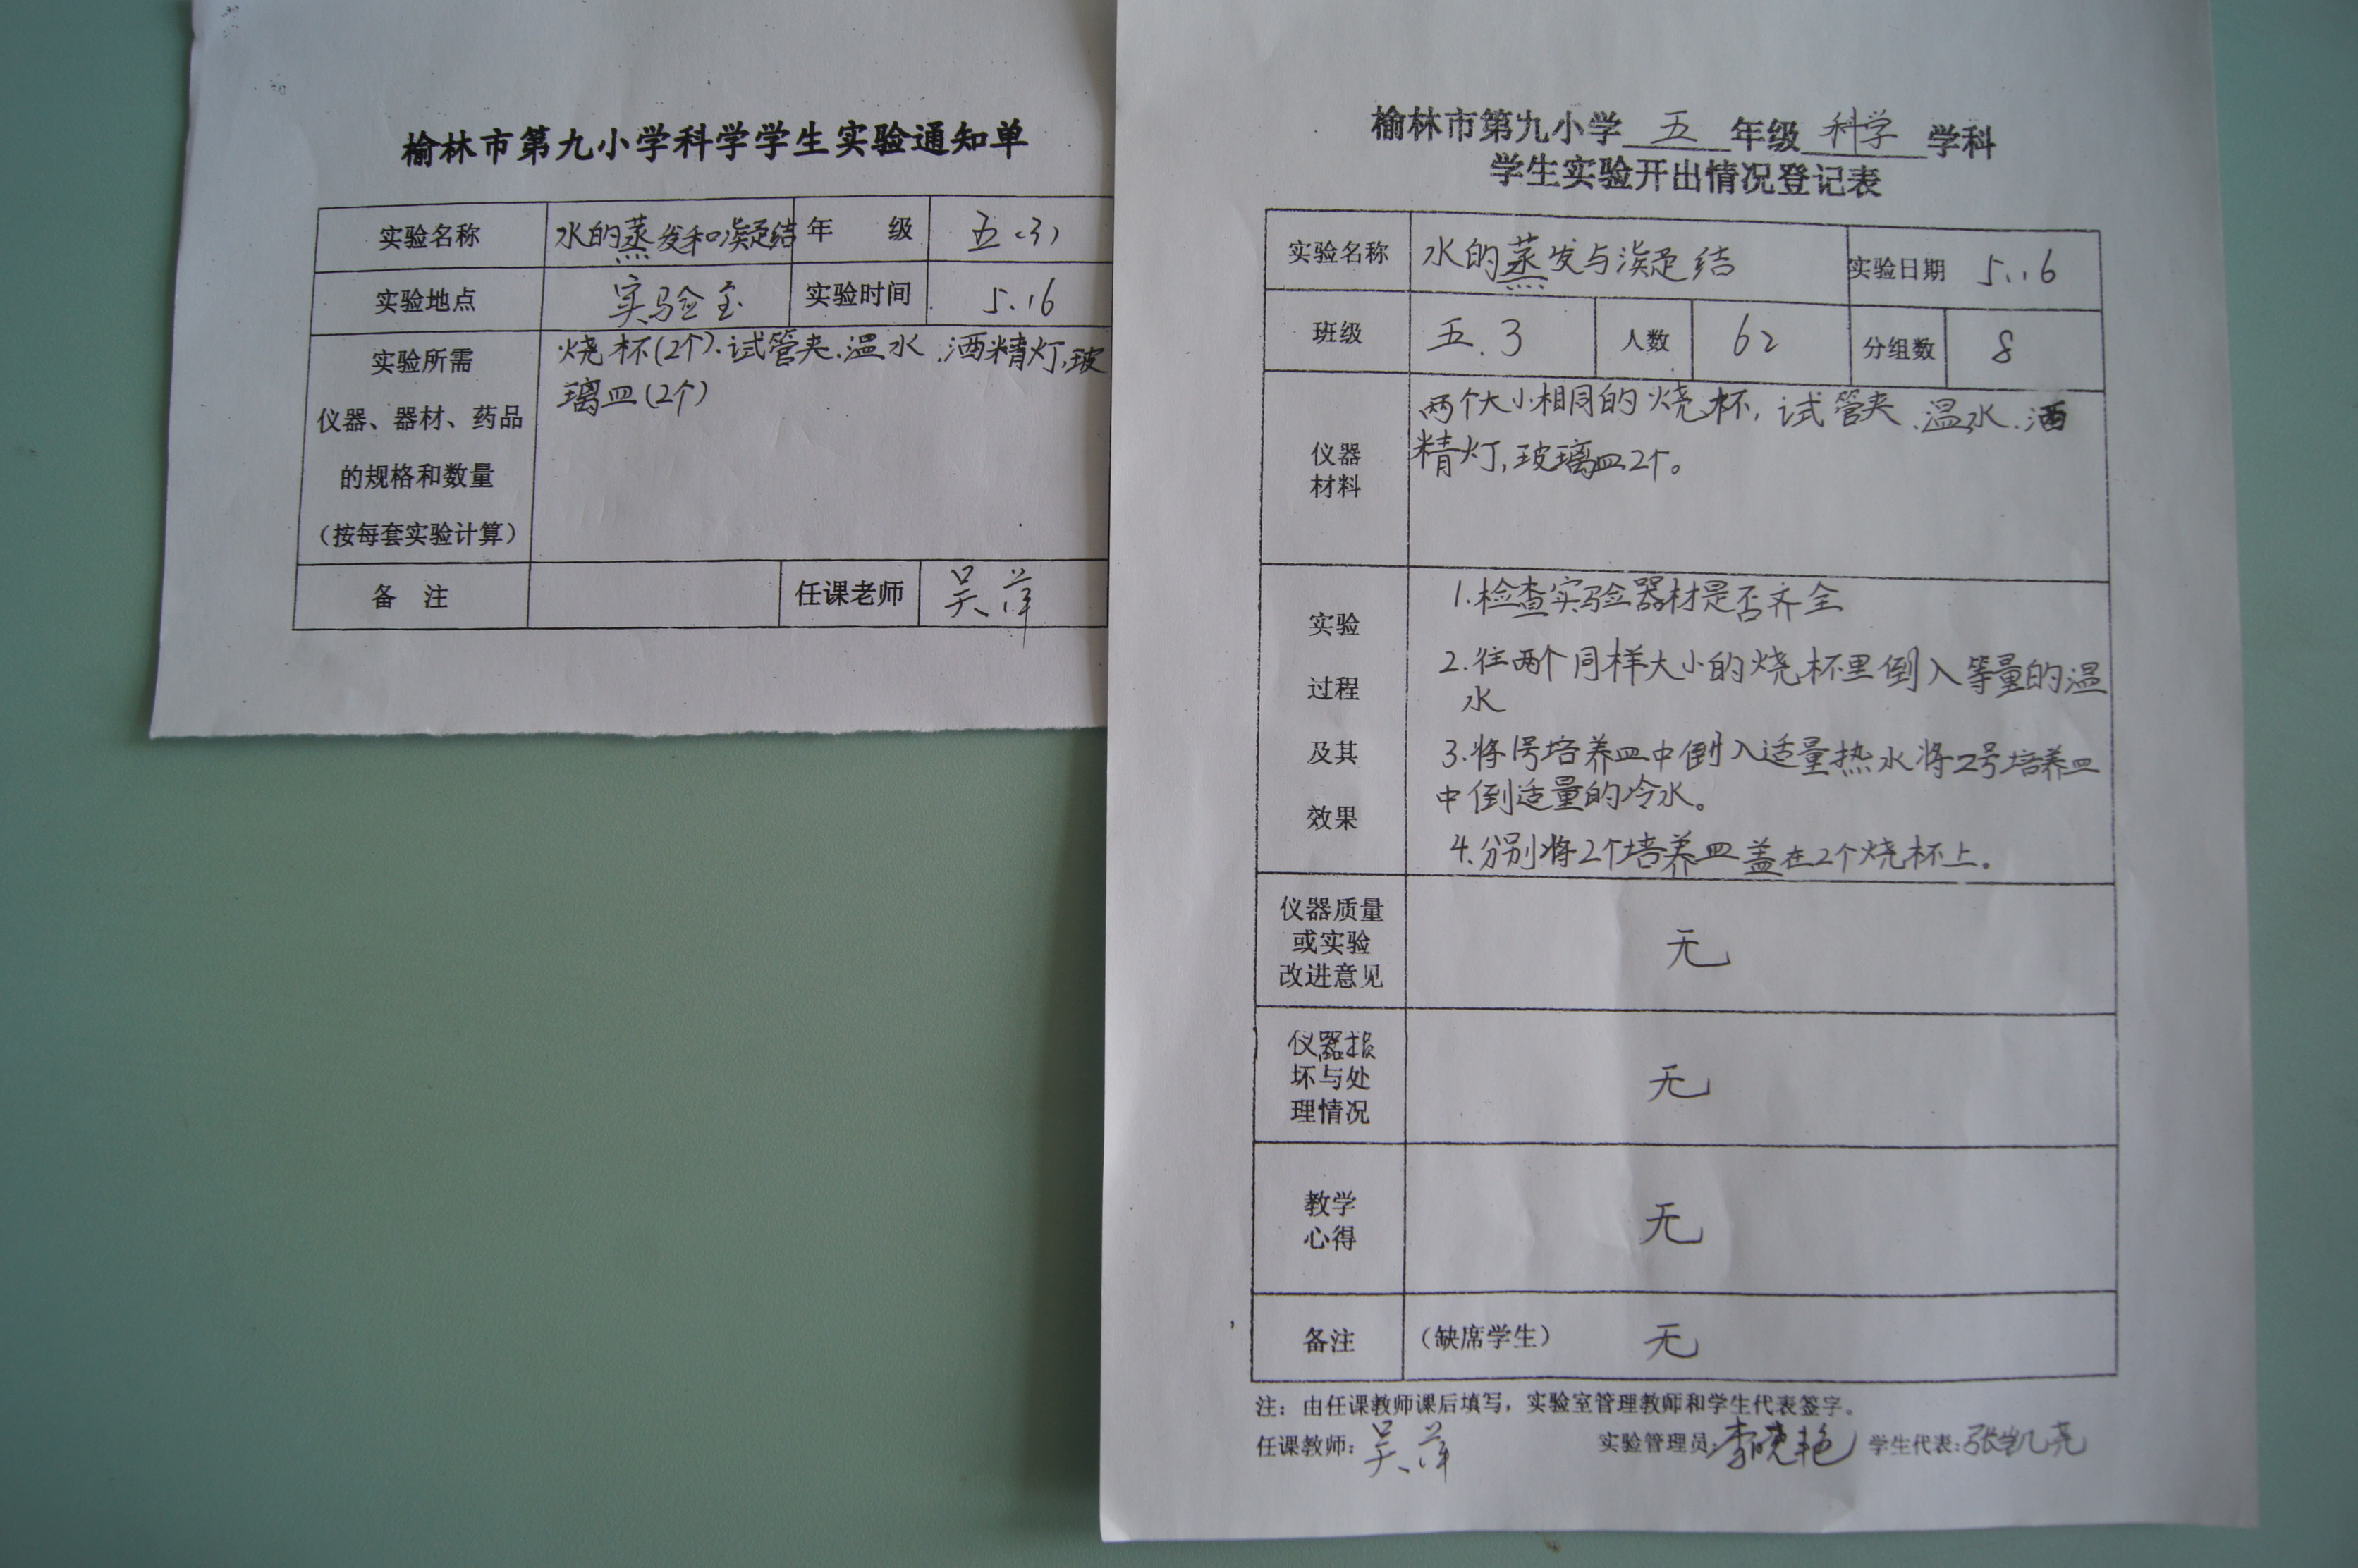 榆林市第九小学科学学生实验通知单
实验名称 水的蒸发和凝结 年 级 五(3)
实验地点 实验室 实验时间 5.16
实验所需
仪器、器材、药品
的规格和数量
(按每套实验计算)
烧杯(2个).试管夹.温水.酒精灯,玻
璃皿(2个)
备 注 任课老师 吴萍
榆林市第九小学 五 年级 科学 学科
学生实验开出情况登记表
实验名称 水的蒸发与凝结 实验日期 5.16
班级 五.3 人数 62 分组数 8
仪器
材料
两个大小相同的烧杯,试管夹.温水.酒
精灯,玻璃皿2个。
实验
过程
及其
效果
1.检查实验器材是否齐全
2.往两个同样大小的烧杯里倒入等量的温
水
3.将1号培养皿中倒入适量热水将2号培养皿
中倒适量的冷水。
4.分别将2个培养皿盖在2个烧杯上。
仪器质量
或实验
改进意见
无
仪器损
坏与处
理情况
无
教学
心得
无
备注 (缺席学生) 无
注:由任课教师课后填写,实验室管理教师和学生代表签字。
任课教师:吴萍 实验管理员:李晓艳 学生代表:张凯尧